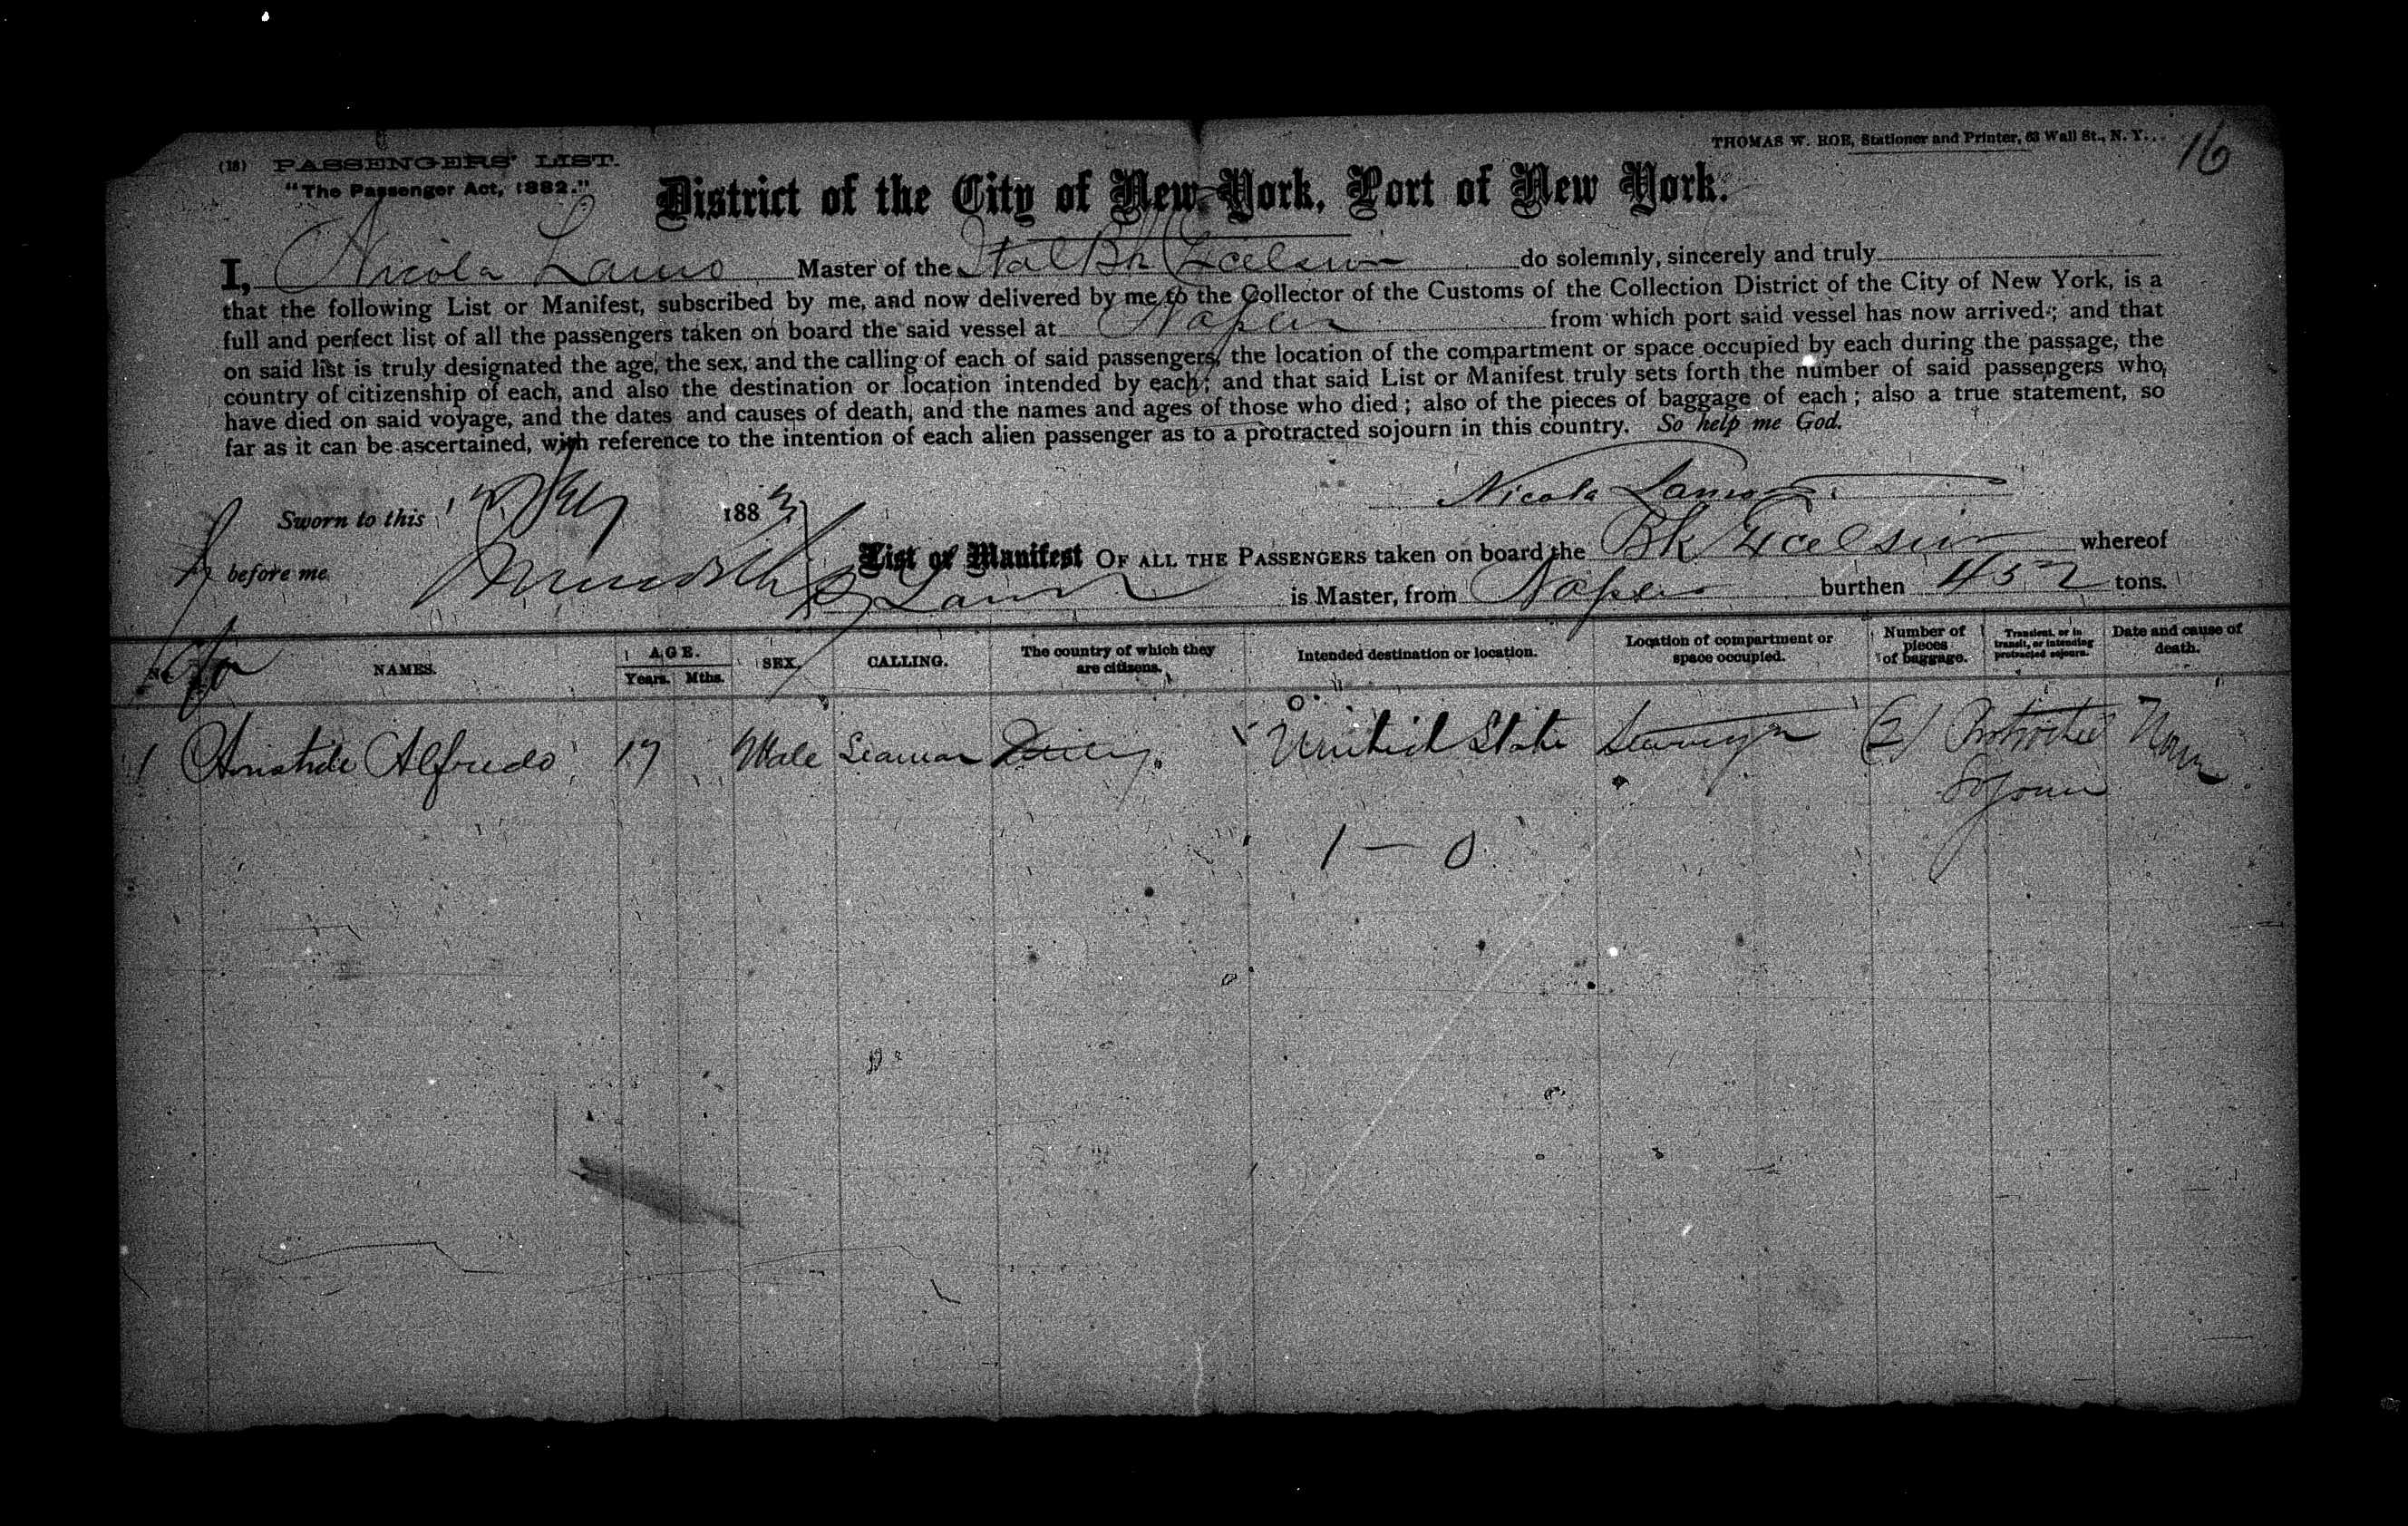 (18) PASSENGERS' LIST.
THOMAS W. ROE, Stationer and Printer, 63 Wall St., N. Y.
16
"The Passenger Act, 1882."
District of the City of New York, Port of New York.
I, Nicola Lauro Master of the Ital Bk Excelsior do solemnly, sincerely and truly
that the following List or Manifest, subscribed by me, and now delivered by me to the Collector of the Customs of the Collection District of the City of New York, is a
full and perfect list of all the passengers taken on board the said vessel at Naples from which port said vessel has now arrived; and that
on said list is truly designated the age, the sex, and the calling of each of said passengers, the location of the compartment or space occupied by each during the passage, the
country of citizenship of each, and also the destination or location intended by each; and that said List or Manifest truly sets forth the number of said passengers who
have died on said voyage, and the dates and causes of death, and the names and ages of those who died; also of the pieces of baggage of each; also a true statement, so
far as it can be ascertained, with reference to the intention of each alien passenger as to a protracted sojourn in this country. So help me God.
Nicola Lauro
Sworn to this 1883
before me
List or Manifest OF ALL THE PASSENGERS taken on board the Bk Excelsior whereof
Lauro is Master, from Naples burthen 452 tons.
NAMES. AGE. Years. Mths. SEX. CALLING. The country of which they are citizens. Intended destination or location. Location of compartment or space occupied. Number of pieces of baggage. Transient, or in transit, or intending protracted sojourn. Date and cause of death.
1 Aristide Alfredo 17 Male Seaman Italy. United State Steerage (2) Protracted None
Sojourn
1 — 0